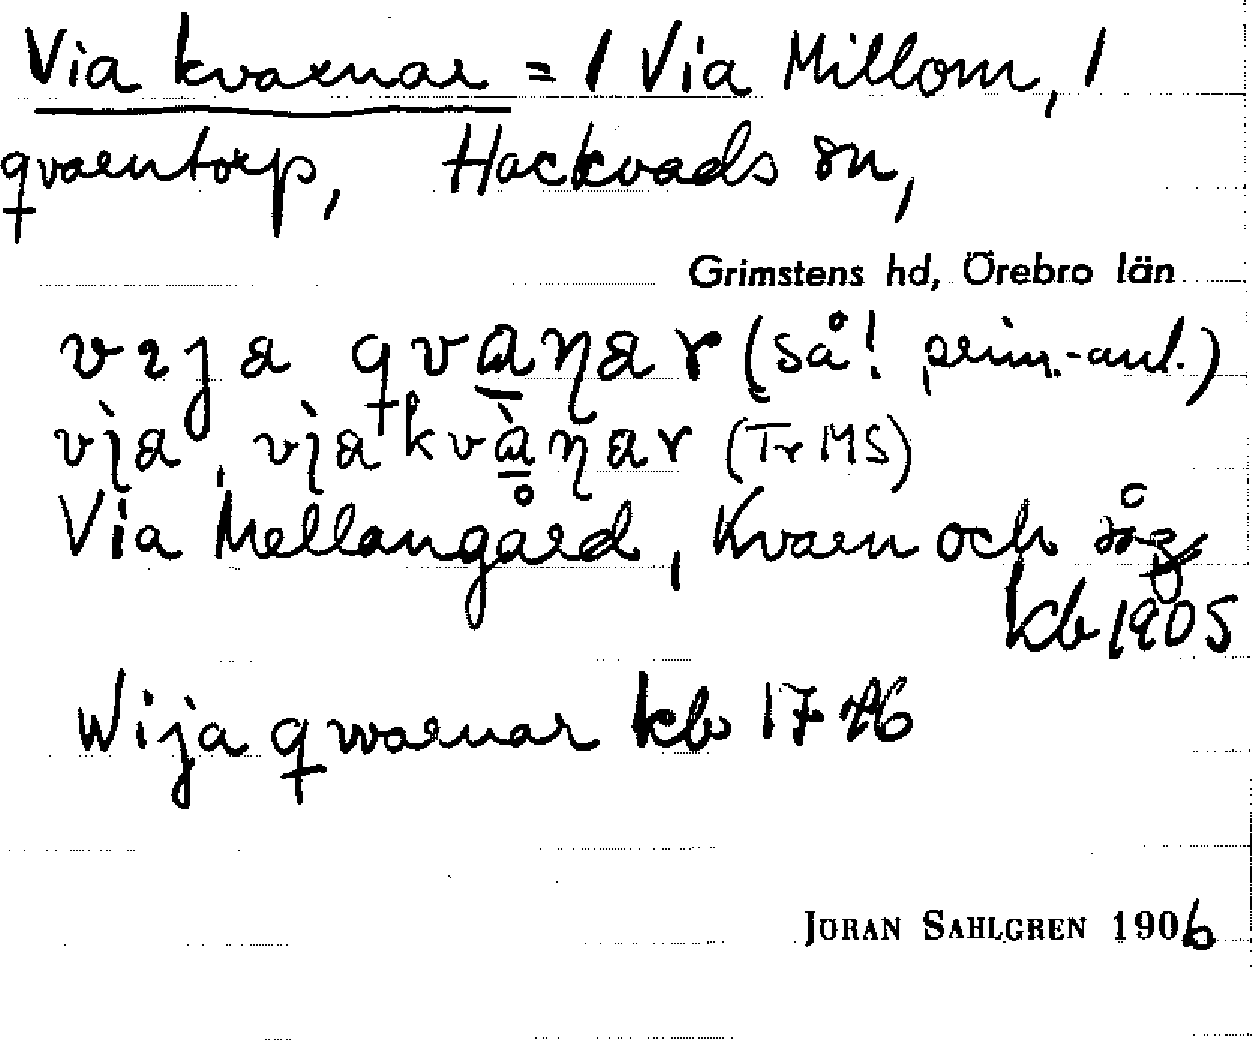 Via kvarnar = 1 Via Millom, 1
qvarntorp, Hackvads sn,
Grimstens hd, Örebro län
vɪja qvaɳar (så! prim.-ant.)
vı̀ja, vı̀jakvàɳar (Tr MS)
Via Mellangård, Kvarn och såg
kb 1905
Wija qwarnar kb 1746
JÖRAN SAHLGREN 1906